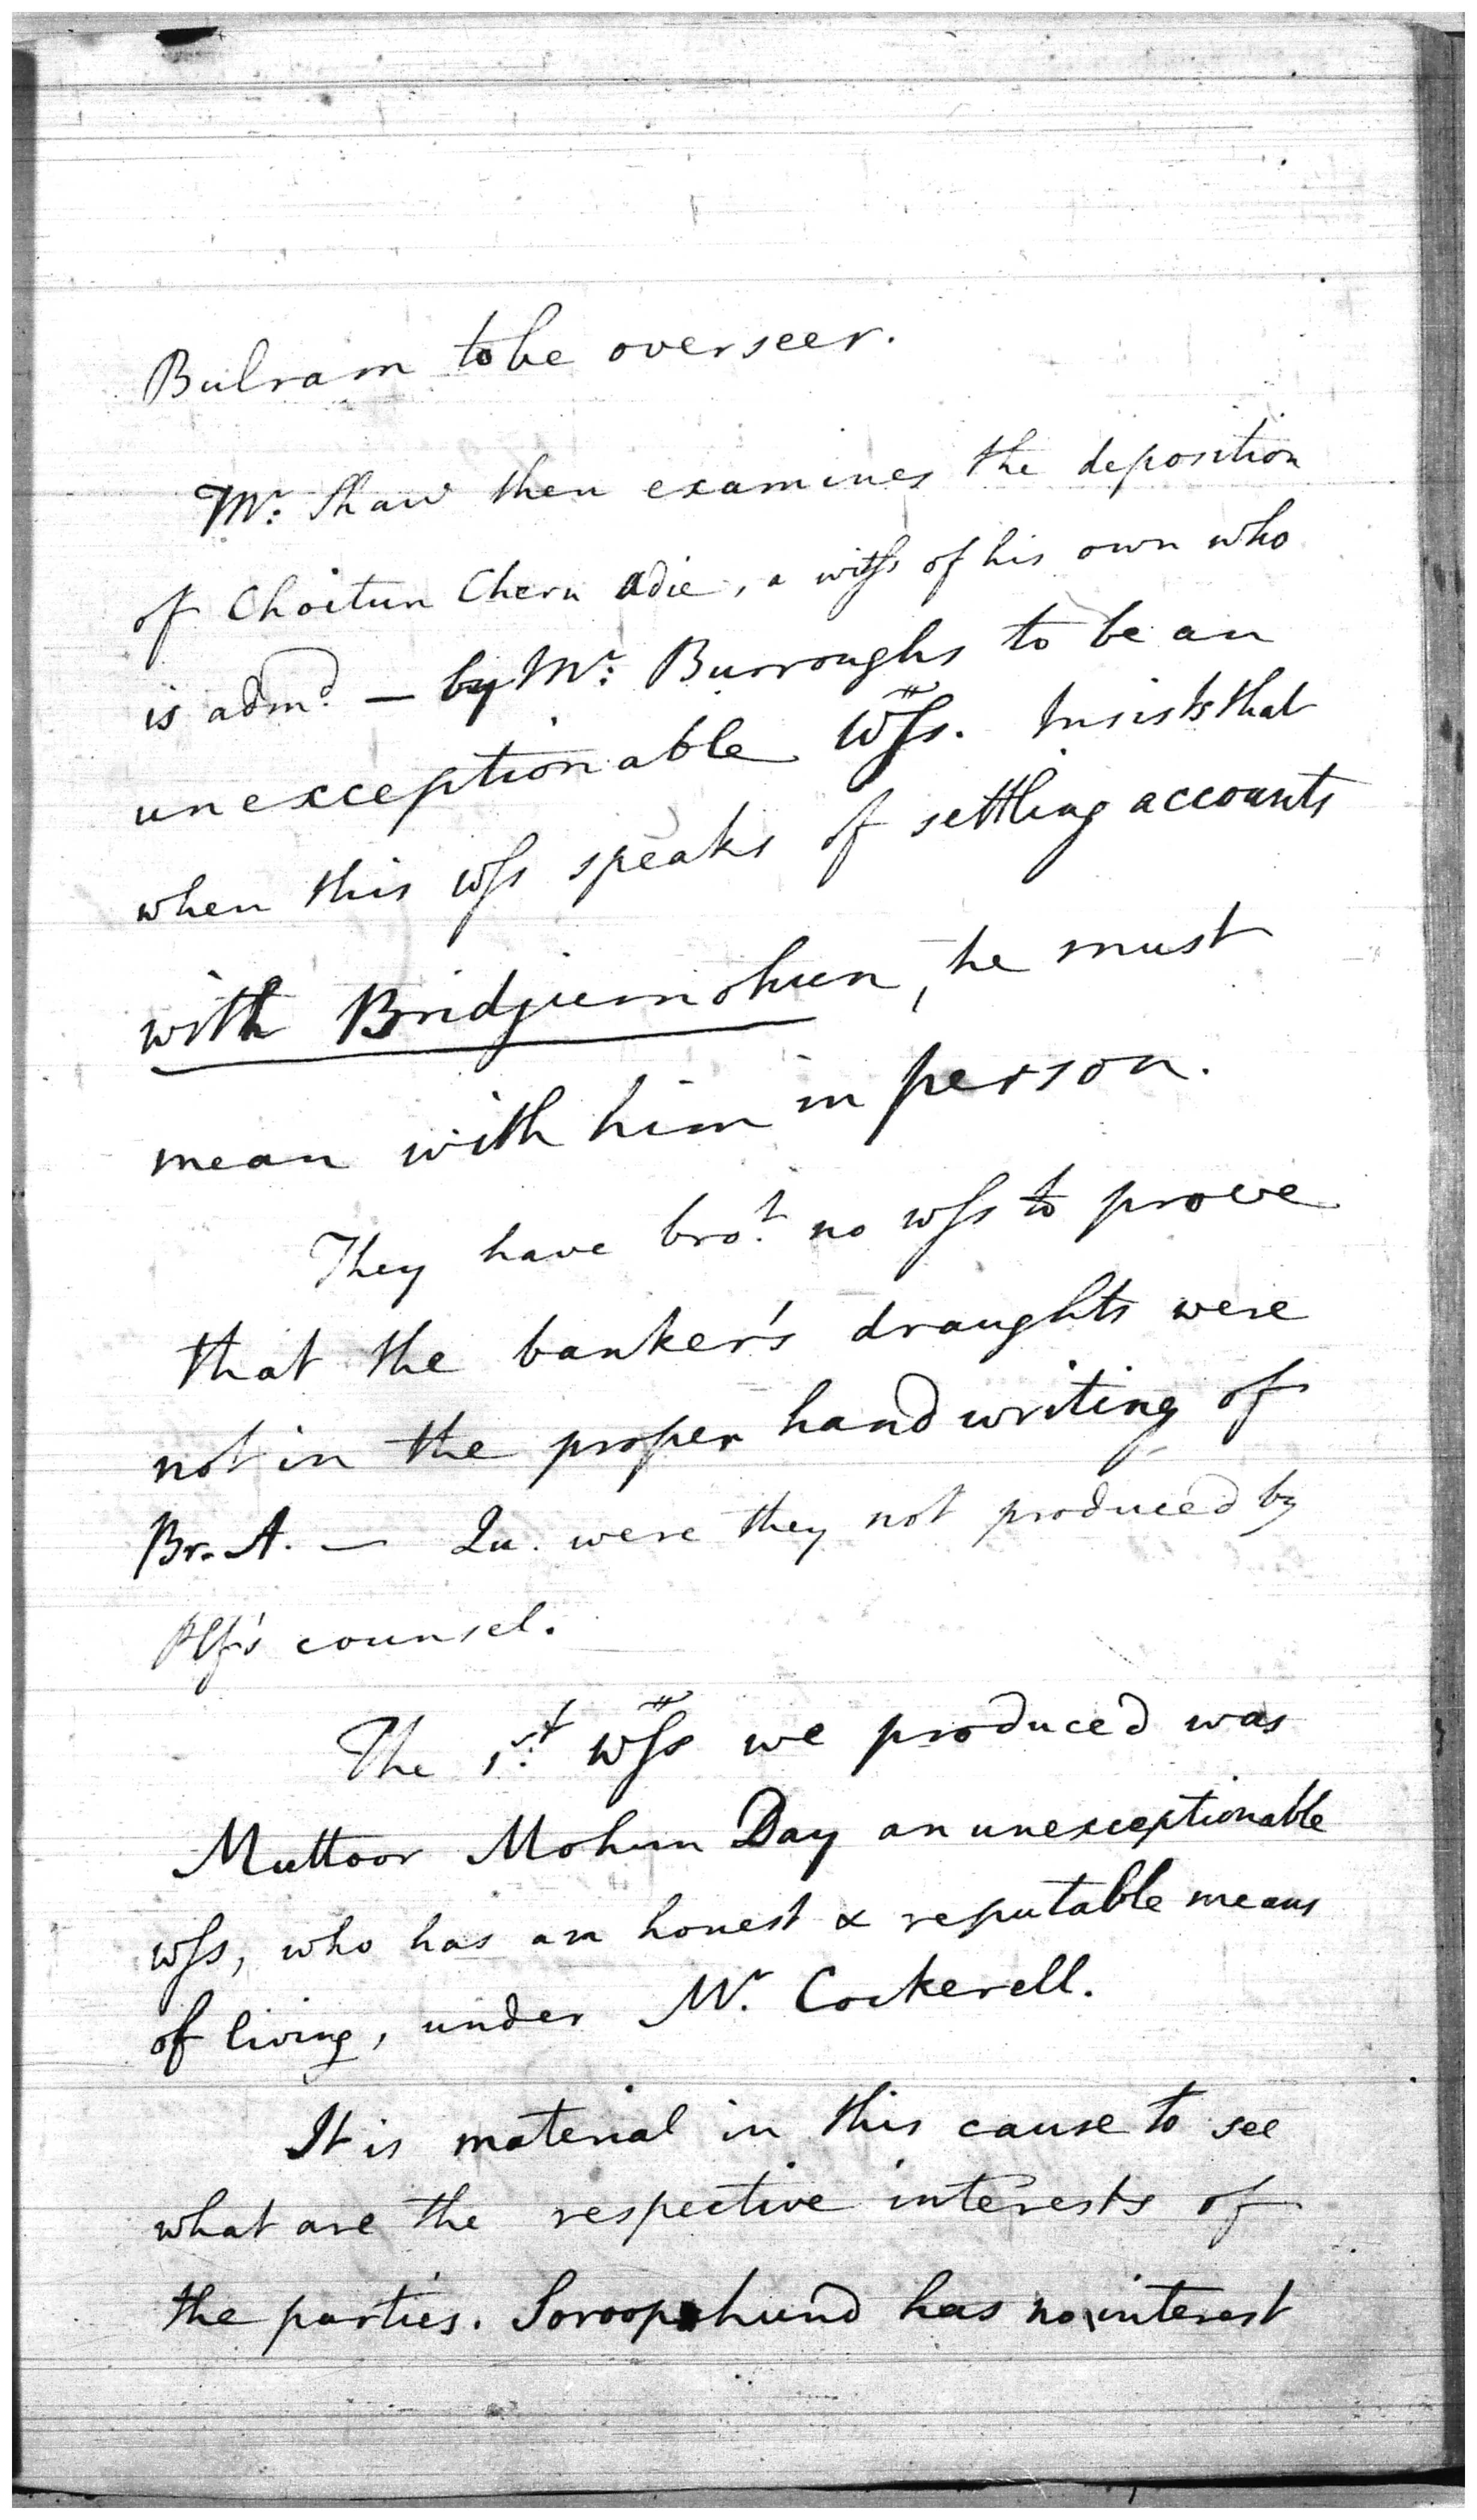 Bulram to be overseer.
Mr. Shaw then examines the deposition
of Choitun Chern Adie, a witss of his own who
is admd. — by Mr. Burroughs to be an
unexceptionable Wss. Insists that
when this wss speaks of settling accounts
with Bridjumohun, he must
mean with him in person.
They have brot. no wss to prove
that the banker's draughts were
not in the proper handwriting of
Br. A. — Qu. were they not produced by
Plf's counsel.
The 1st. Wss we produced was
Muttoor Mohun Day an unexceptionable
wss, who has an honest & reputable means
of living, under Mr. Cockerell.
It is material in this cause to see
what are the respective interests of
the parties. Soroopchund has no interest